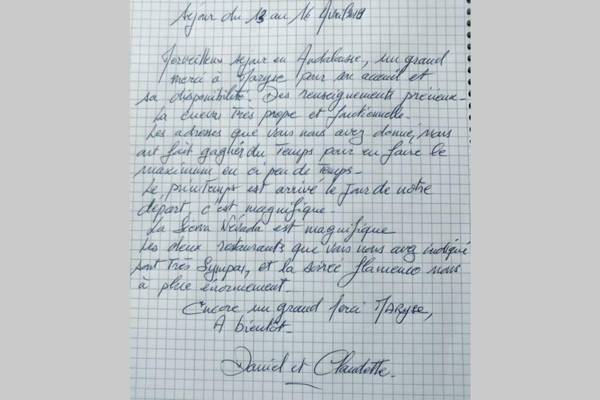 Sejour du 13 au 16 Avril 2019
Merveilleux sejour en Andalousie, un grand
merci à Maryse pour son accueil et
sa disponibilité. Des renseignements précieux.
La cueva très propre et fonctionnelle.
Les adresses que vous nous avez donné, nous
ont fait gagner du Temps pour en faire le
maximum en si peu de Temps.
Le printemps est arrivé le jour de notre
départ, c'est magnifique.
La Sierra Nevada est magnifique
Les deux restaurants que vous nous avez indiqué
sont Très Sympas, et la soirée flamenco nous
à plue énormement.
Encore un grand Merci MARyse,
A bientôt.
Daniel et Claudette.